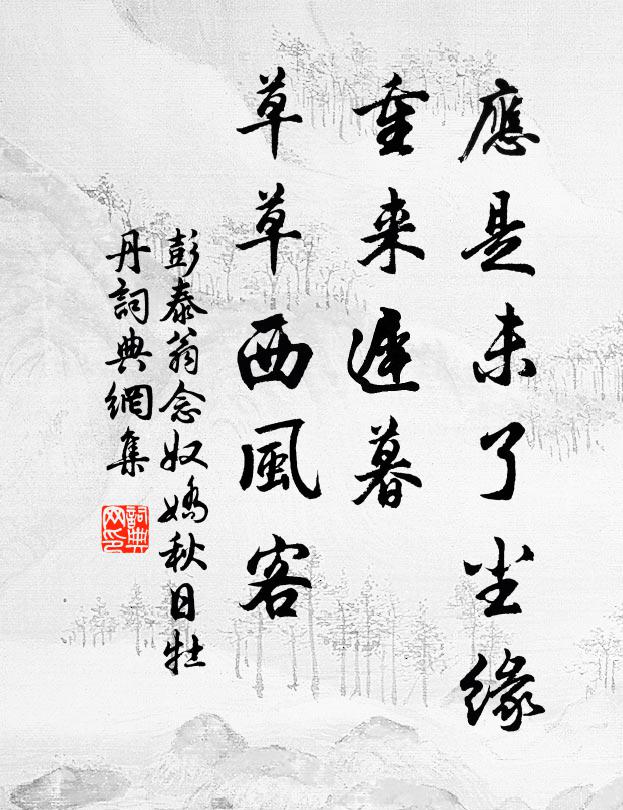 應是未了尘緣
重来遲暮
草草西風客
彭泰翁念奴嬌秋日牡
丹詞典網集
詞典网印